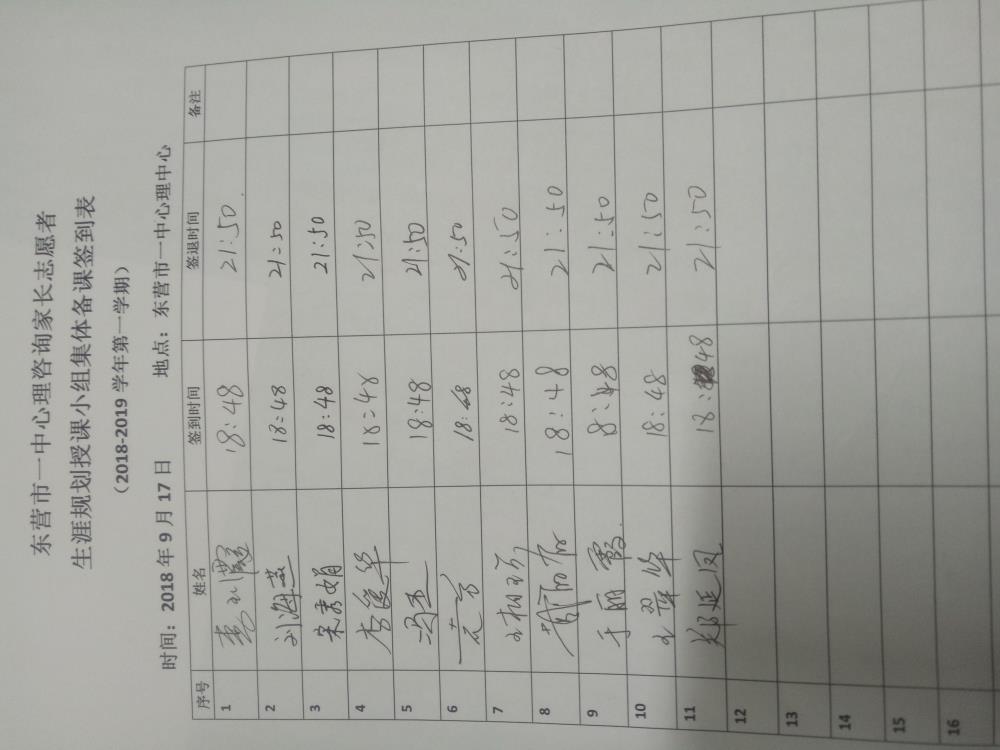 东营市一中心理咨询家长志愿者
生涯规划授课小组集体备课签到表
（2018-2019 学年第一学期）
时间：2018 年 9 月 17 日 地点：东营市一中心理中心
序号 姓名 签到时间 签退时间 备注
1 18:48 21:50
2 刘海燕 18:48 21:50
3 宋秀娟 18:48 21:50
4 18:48 21:50
5 冯玉 18:48 21:50
6 18:48 21:50
7 18:48 21:50
8 18:48 21:50
9 于丽霞 8:48 21:50
10 王翠华 18:48 21:50
11 郑延凤 18:48 21:50
12
13
14
15
16